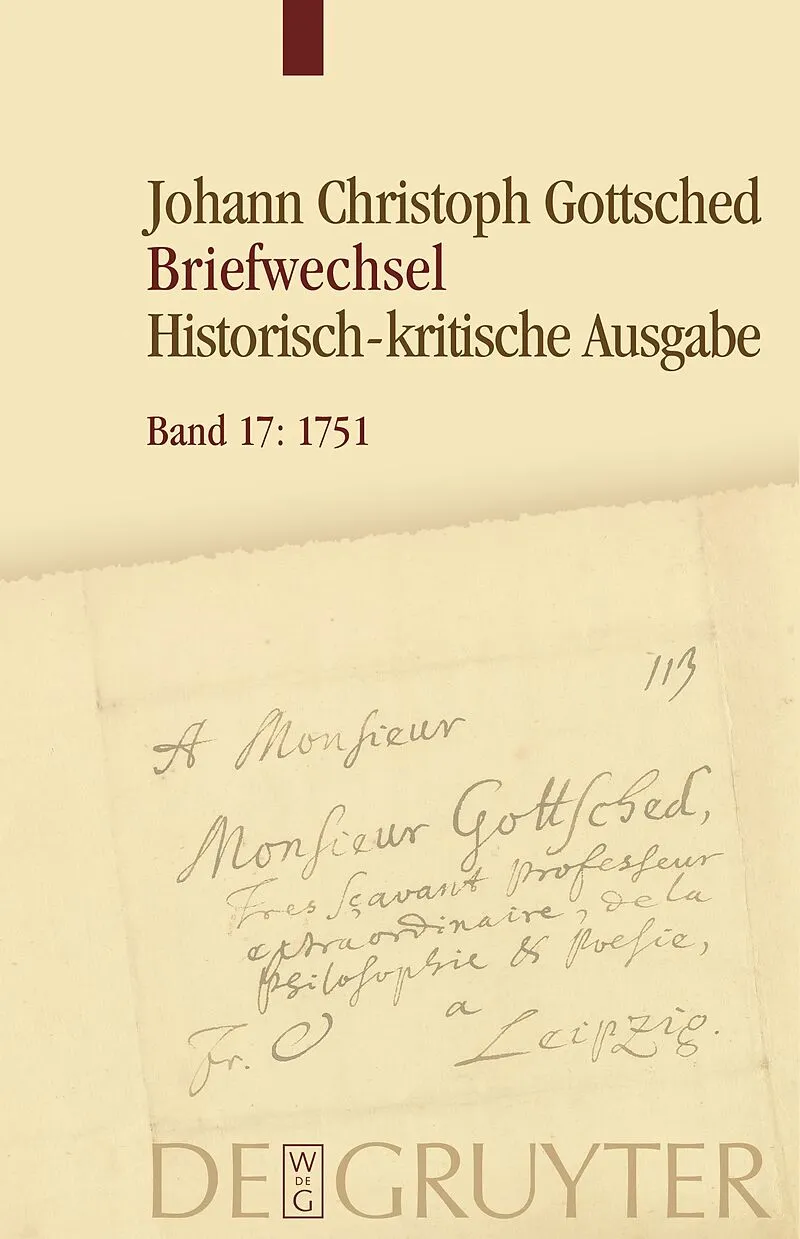 Johann Christoph Gottsched
Briefwechsel
Historisch-kritische Ausgabe
Band 17: 1751
113
A Monsieur
Monsieur Gottſched,
Tres ſçavant Professeur
extraordinaire, de la
Philosophie & Poesie,
a
Leipzig.
Fr.
DE GRUYTER
W
DE
G